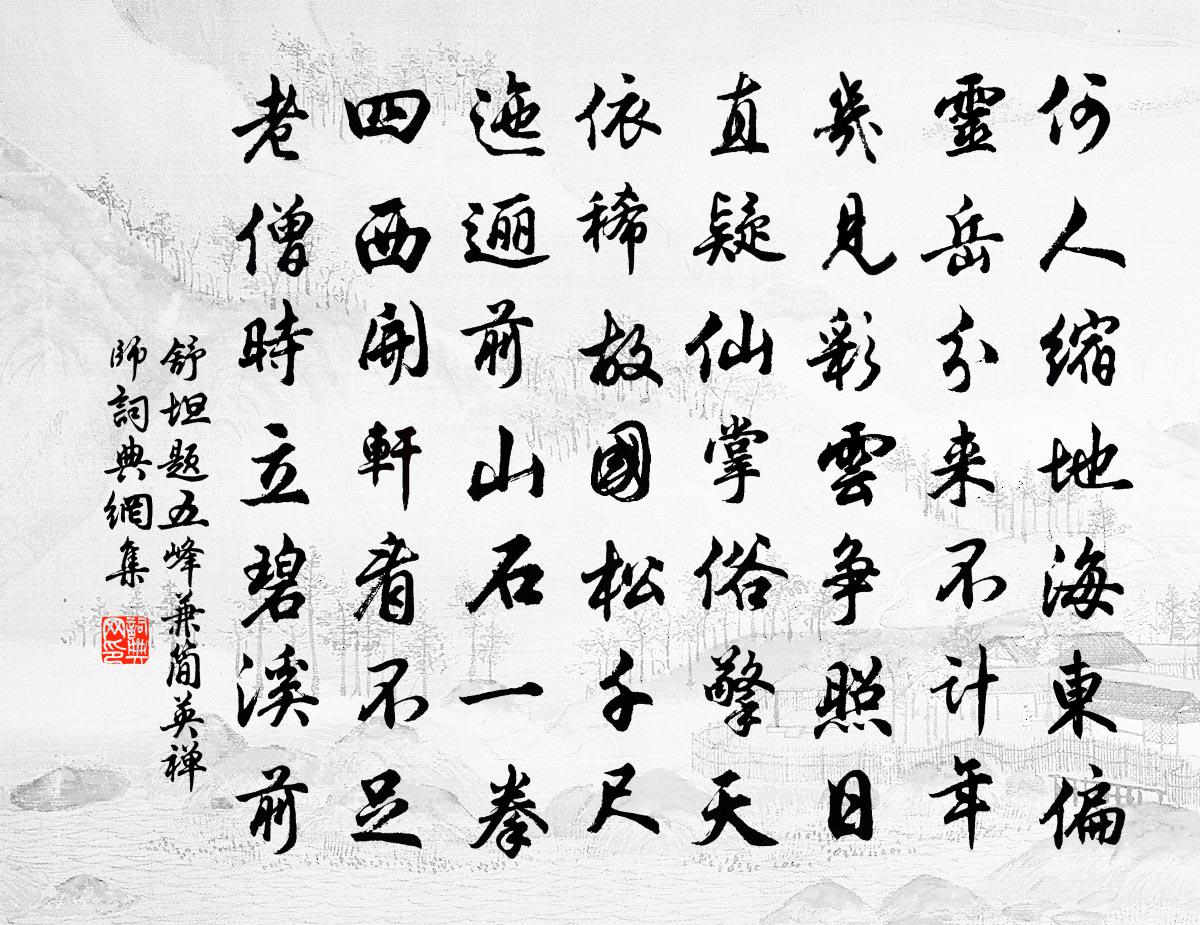 何人縮地海東偏
靈岳分来不计年
幾見彩雲争照日
直疑仙掌俗擎天
依稀故國松千尺
迤逦前山石一拳
四西開軒看不足
老僧時立碧溪前
舒坦题五峰兼简英禅
師詞典網集
詞典
网印